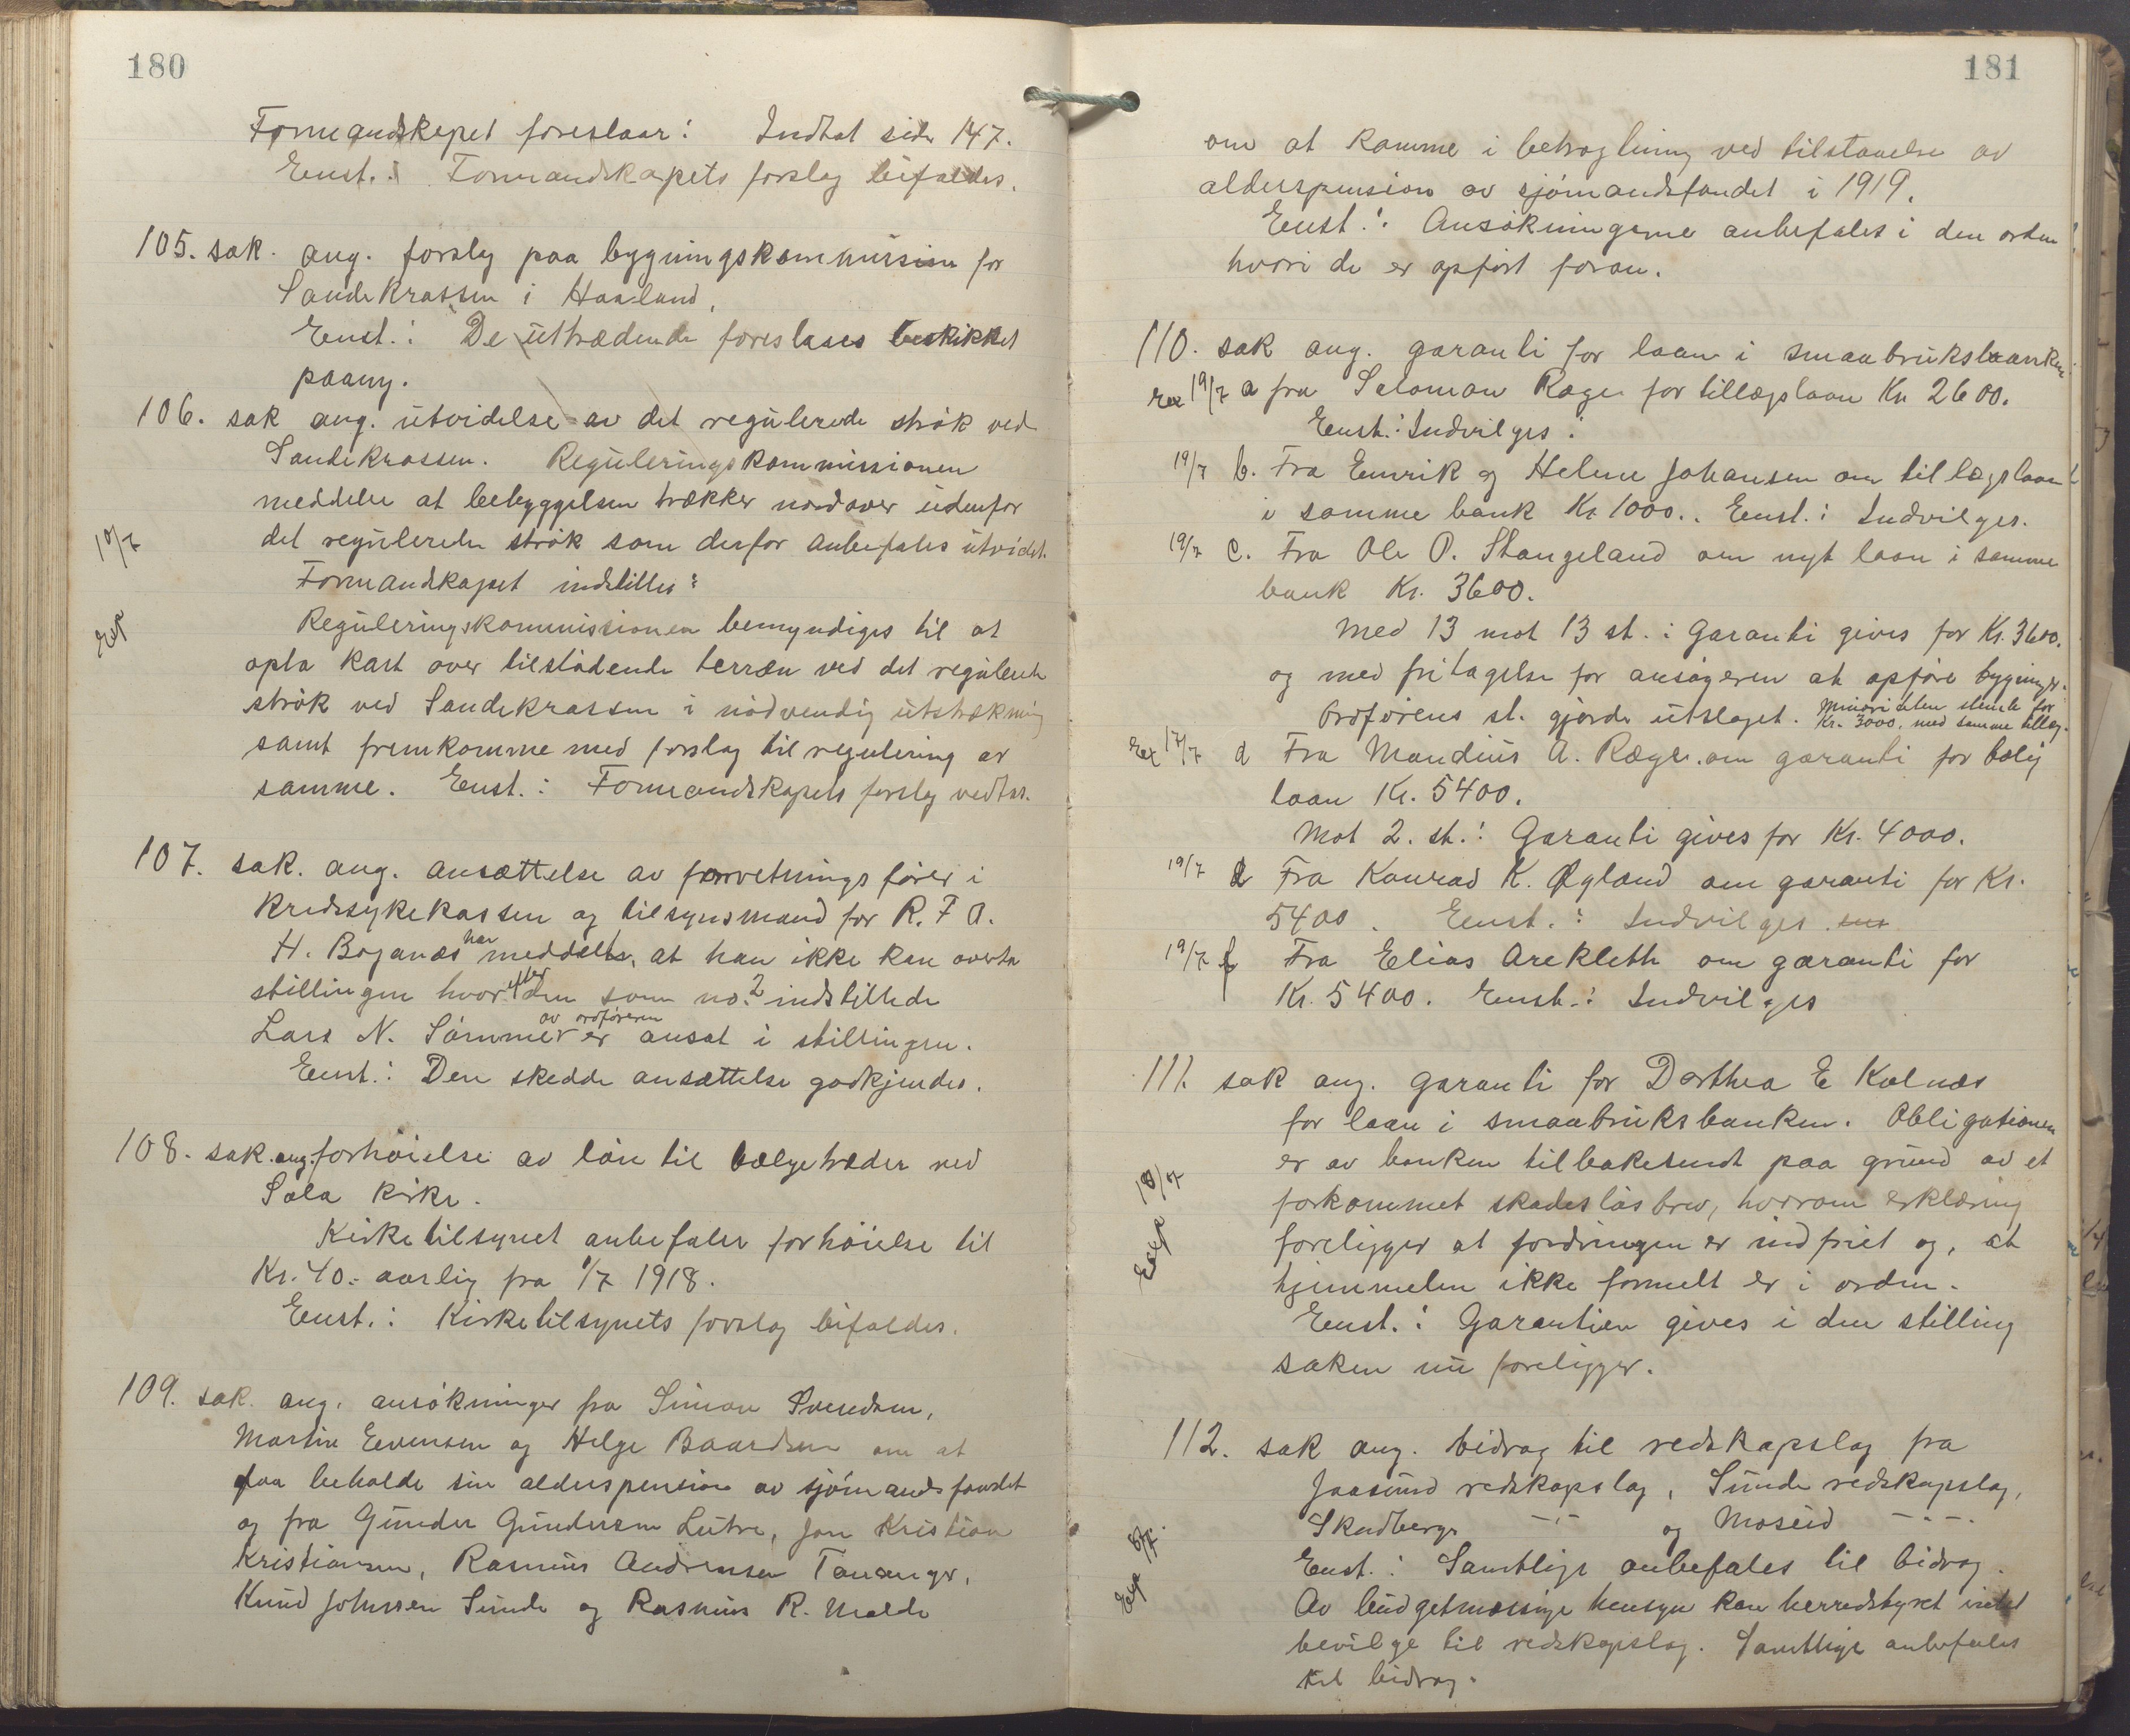 180
Formandskapet foreslaar: Indtat side 147.
Enst.: Formandskapets forslag bifaldes.
105. sak. ang. forslag paa bygningskommission for
Sandekrossen i Haaland.
Enst.: De uttrædende foreslaaes beskikket
paany.
106. sak ang. utvidelse av det regulerede strøk ved
Sandekrossen. Reguleringskommissionen
meddeler at bebyggelsen trækker nordover udenfor
det regulerede strøk som derfor anbefales utvidet.
Formandskapet indstiller:
Reguleringskommissionen bemyndiges til at
opta kart over tilstødende terræn ved det regulerte
strøk ved Sandekrossen i nødvendig utstrækning
samt fremkomme med forslag til regulering av
samme. Enst.: Formandskapets forslag vedtas.
19/7
Exp
107. sak. ang. ansættelse av forretningsfører i
Kredssykekassen og tilsynsmand for R. F. A.
H. Bøganæs har meddelt, at han ikke kan overta
stillingen hvorefter den som no. 2 indstillede
Lars N. Sømme av ordføreren er ansat i stillingen.
Enst.: Den skedde ansættelse godkjendes.
108. sak. ang. forhøielse av løn til bælgetræder ved
Sola kirke.
Kirketilsynet anbefaler forhøielse til
Kr. 40.- aarlig fra 1/7 1918.
Enst.: Kirketilsynets forslag bifaldes.
109. sak. ang. ansøkninger fra Simon Svendsen,
Martin Evensen og Helge Baardsen om at
faa beholde sin alderspension av sjømandsfondet
og fra Gunder Gundersen Lutre, Jon Kristian
Kristiansen, Rasmus Andreasen Tananger,
Knud Johnsen Sunde og Rasmus R. Molde
181
om at komme i betragtning ved tilstaaelse av
alderspension av sjømandsfondet i 1919.
Enst.: Ansøkningerne anbefales i den orden
hvori de er opført foran.
110. sak ang. garanti for laan i smaabruksbanken.
Ex 19/7 a fra Salomon Ræge for tillægslaan Kr 2600.
Enst.: Indvilges.
19/7 b. Fra Emrik og Helene Johansen om tillægslaan
i samme bank Kr 1000.. Enst.: Indvilges.
19/7 c. Fra Ole O. Stangeland om nyt laan i samme
bank Kr. 3600.
Med 13 mot 13 st.: Garanti gives for Kr. 3600.
og med fritagelse for ansøgeren at opføre bygninger.
Ordførerens st. gjorde utslaget. Minoriteten stemte for
Kr. 3000. med samme tillæg.
Ex 17/7 d Fra Maudius A. Ræge om garanti for bolig
laan Kr. 5400.
Mot 2. st.: Garanti gives for Kr. 4000.
19/7 Fra Konrad K. Øyland om garanti for Kr.
5400. Enst.: Indvilges
19/7 f Fra Elias Arekleth om garanti for
Kr. 5400. Enst.: Indvilges
111. sak ang. garanti for Dorthea E Kolnæs
for laan i smaabruksbanken. Obligationen
er av banken tilbakesendt paa grund av et
forkommet skadesløsbrev, hvorom erklæring
foreligger at fordringen er indfriet og, at
hjemmelen ikke formelt er i orden.
Enst.: Garantien gives i den stilling
saken nu foreligger.
Exp 19/7
112. sak ang. bidrag til redskapslag fra
Jaasund redskapslag, Sunde redskapslag,
Skadberg -"- og Moseid -"-.
Enst.: Samtlige anbefales til bidrag.
Av budgetmæssige hensyn kan herredstyret intet
bevilge til redskapslag. Samtlige anbefales
til bidrag.
Exp